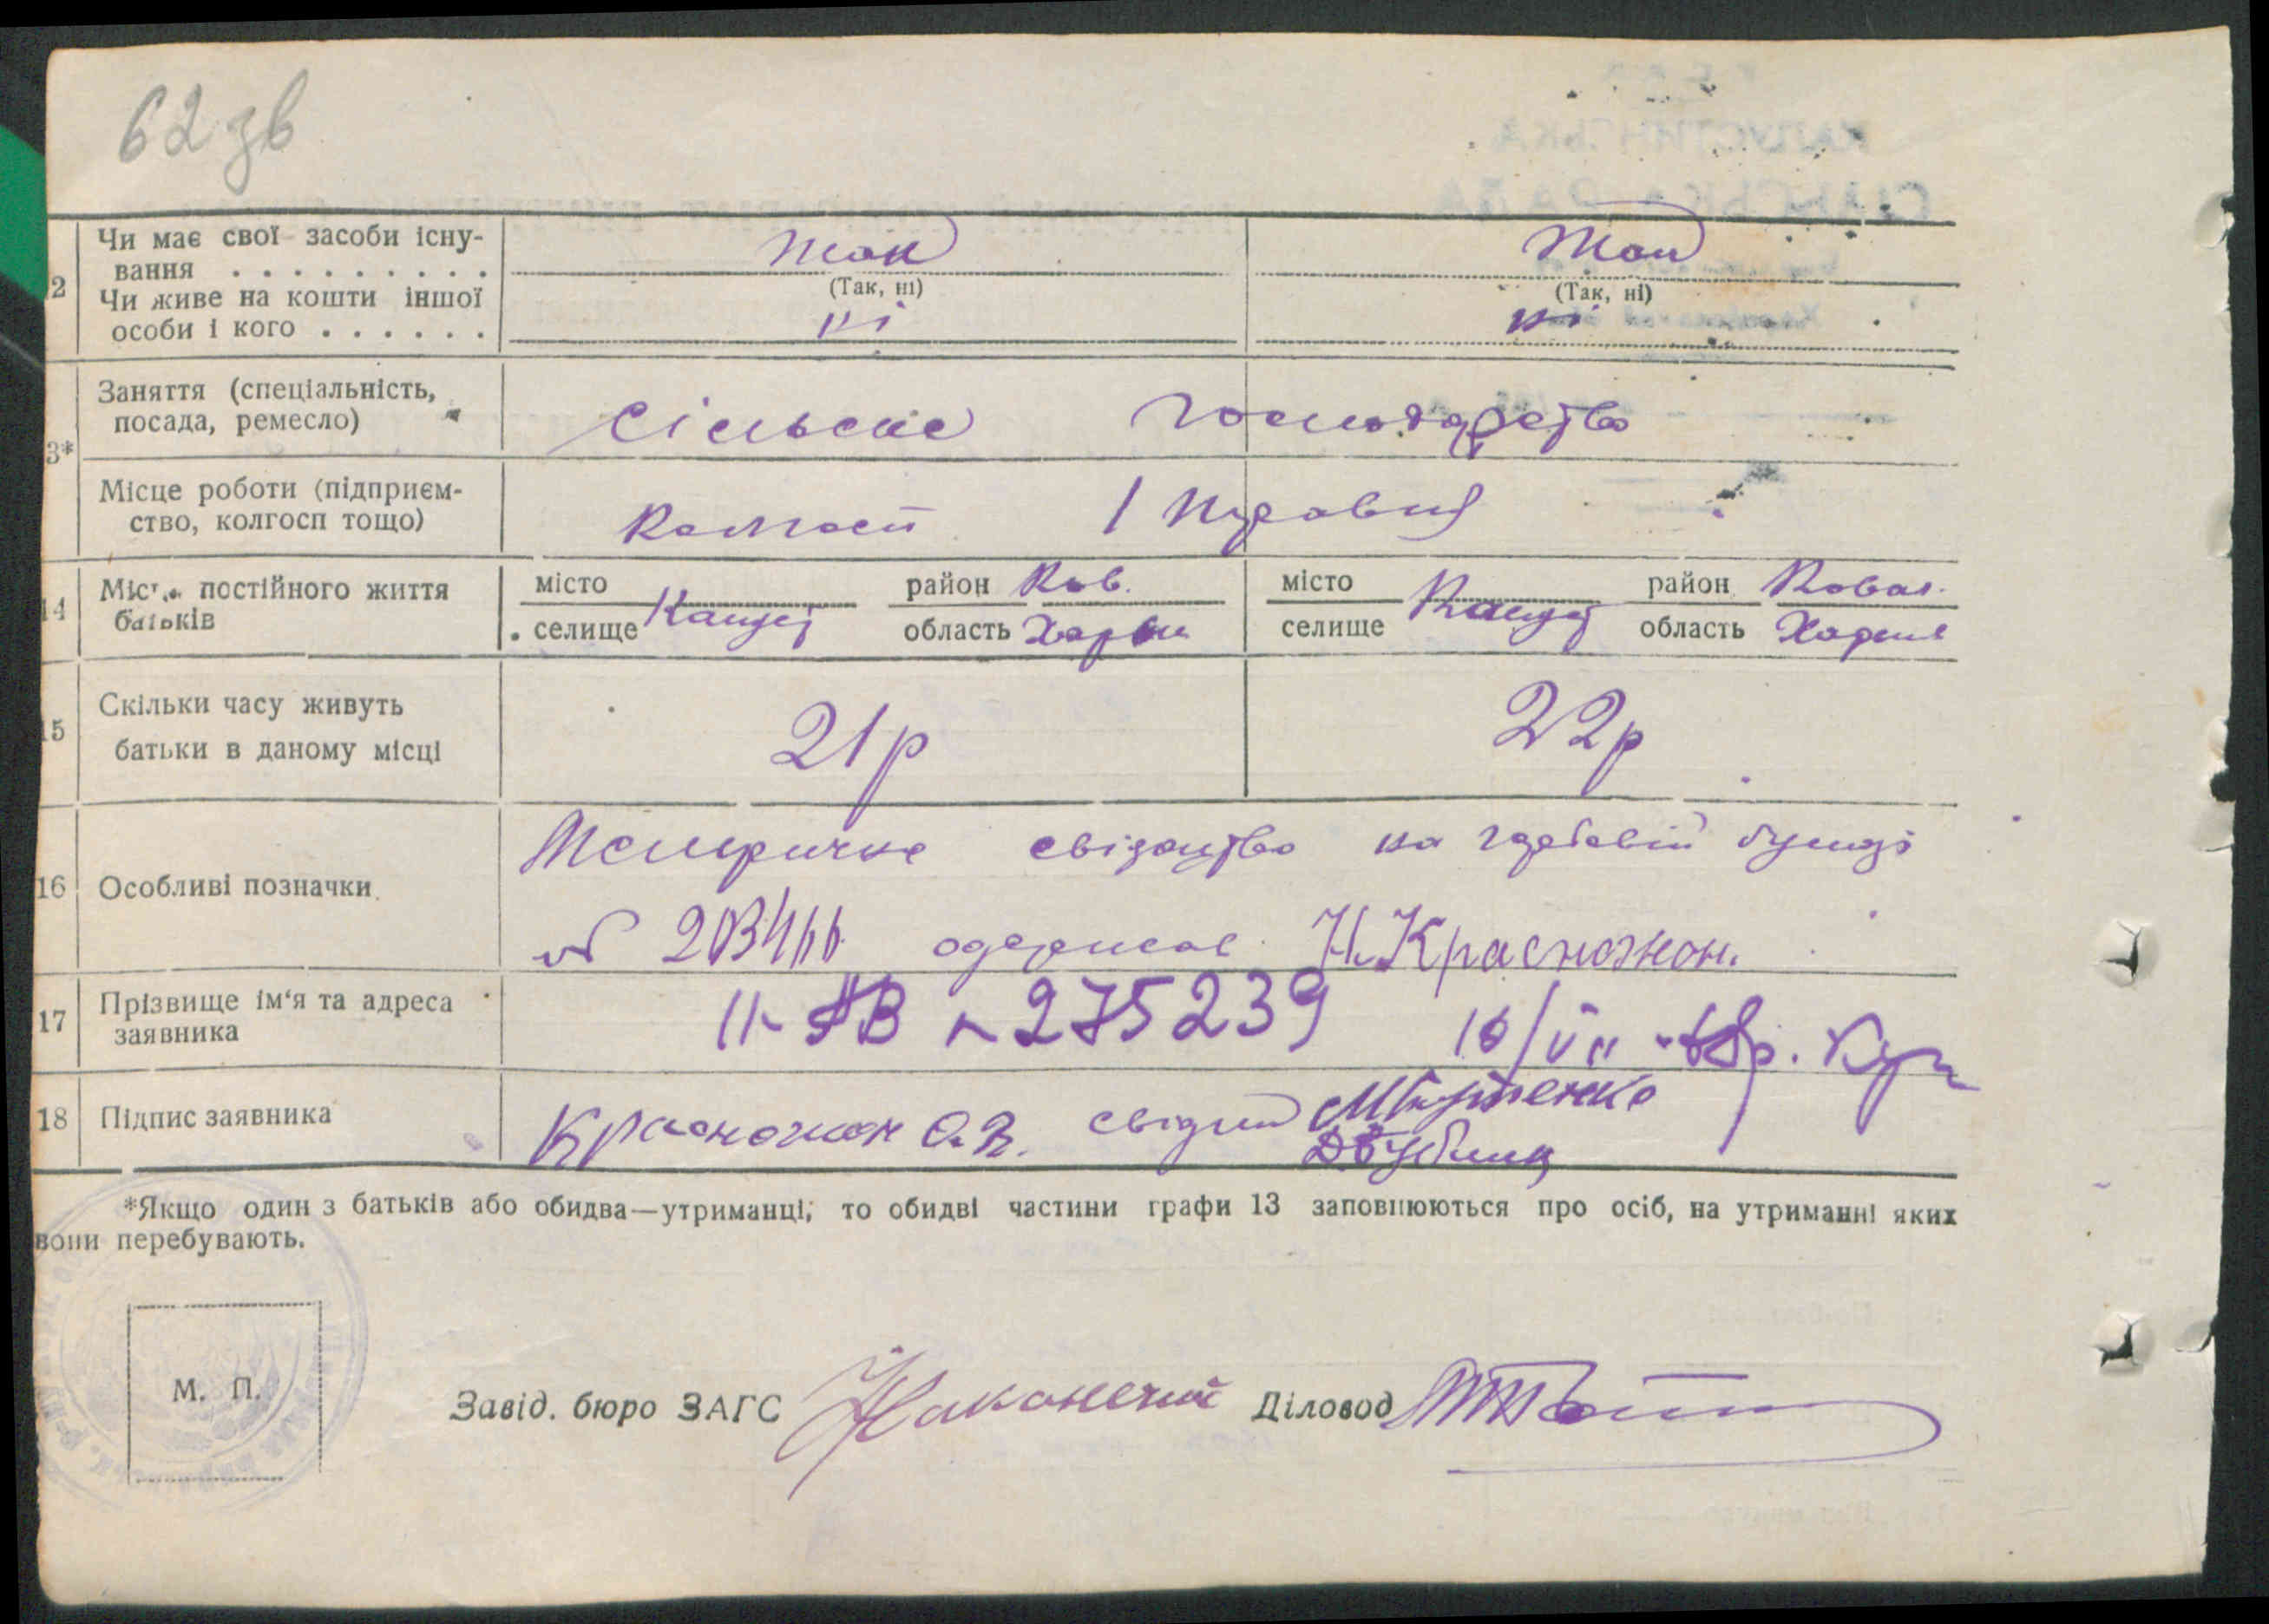 62 зв
2 Чи має свої засоби існу- так Так
вання . . . . . . . . . (Так, ні) (Так, ні)
Чи живе на кошти іншої
особи і кого . . . . . . ні ні
Заняття (спеціальність,
посада, ремесло) сільське господарство
3*
Місце роботи (підприєм-
ство, колгосп тощо) Колгосп
14 Місце постійного життя місто район Ков. місто район Ковал.
батьків селище область Харків селище область Харків
15 Скільки часу живуть
батьки в даному місці 21р 22р
16 Особливі позначки. свідоцтво на гербовій бумазі
№ 203466 одержав Н. Красножон.
17 Прізвище ім'я та адреса
заявника АВ 275239 16/VII
18 Підпис заявника Красножон О.В. свідки
*Якщо один з батьків або обидва—утриманці, то обидві частини графи 13 заповнюються про осіб, на утриманні яких
вони перебувають.
М. П.
Завід. бюро ЗАГС Наконечний Діловод